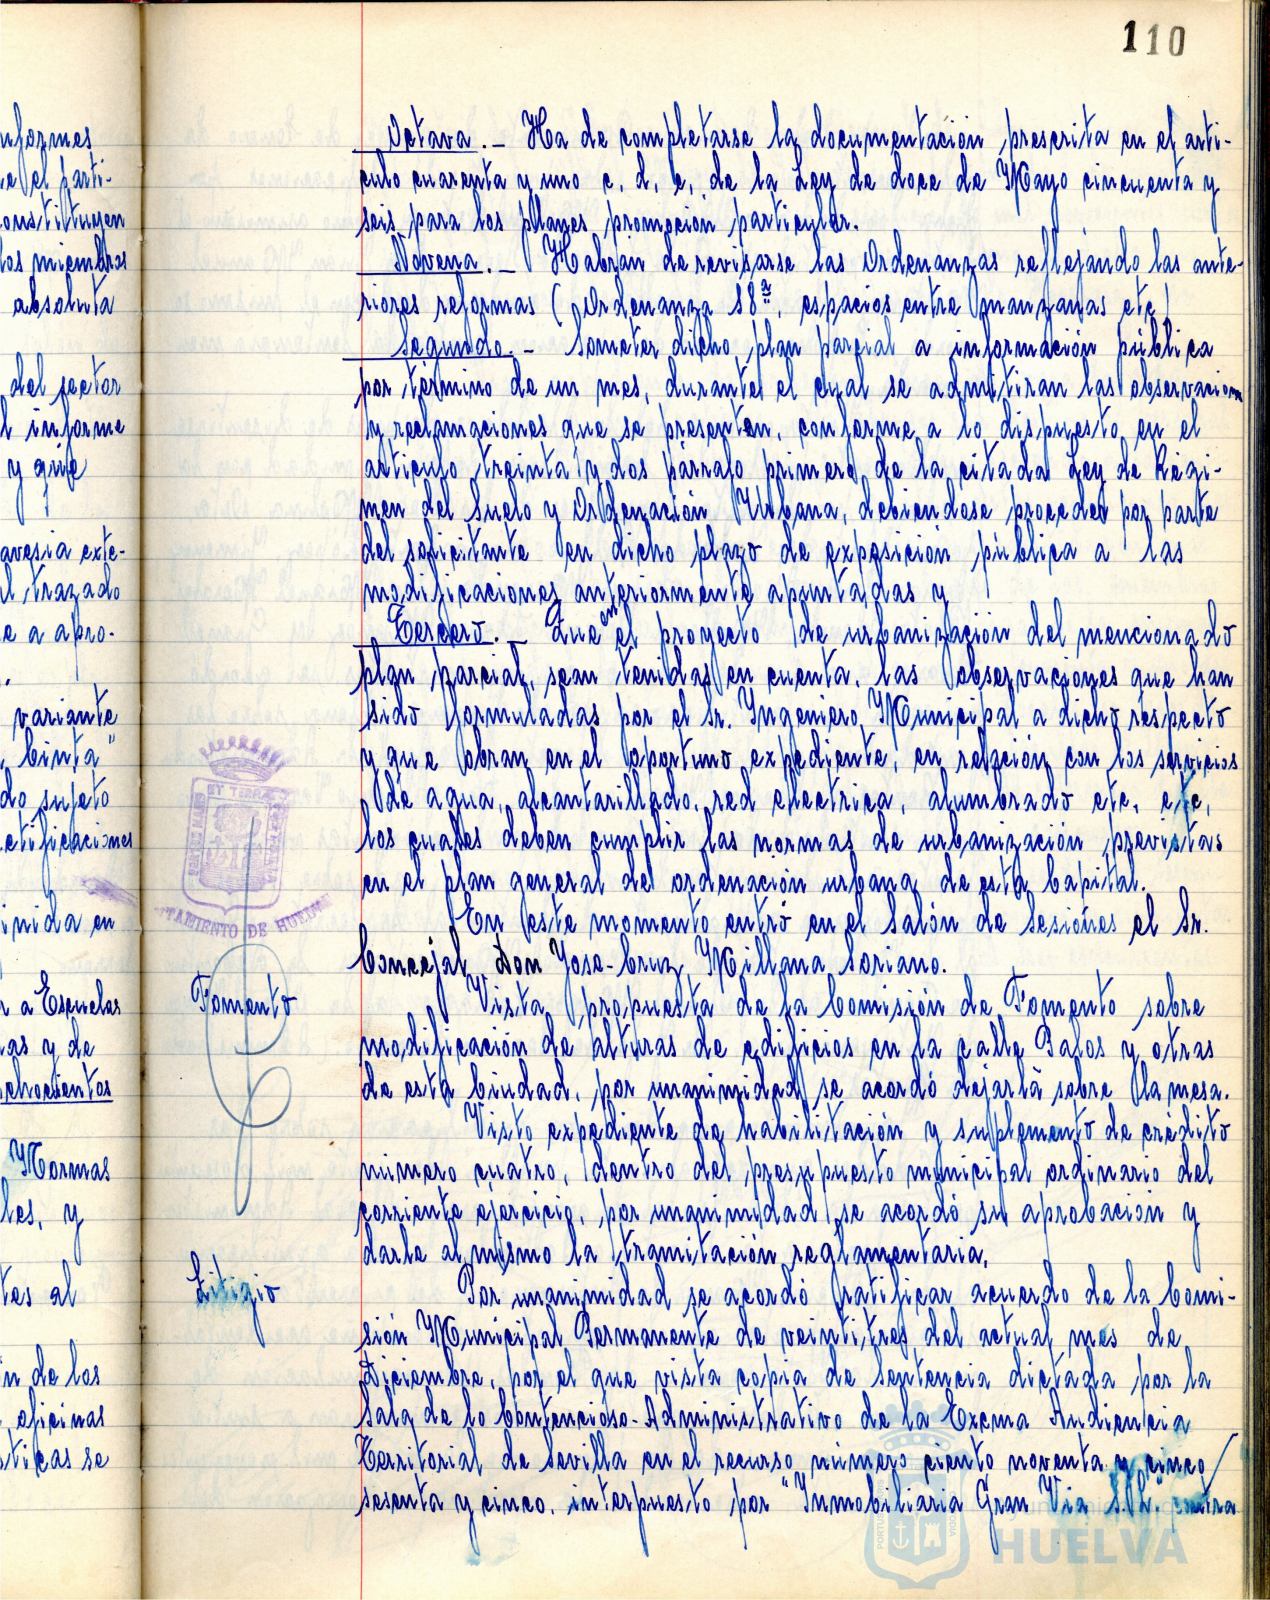 110
nformes
e el parti-
onstituyen
los miembros
absoluta
del sector
l informe
y que
avesia exte-
l trazado
e a apro-
variante
Cinta"
do sujeto
ctificaciones
inida en
r a Escuelas
as y de
ochocientos
Normas
les, y
tes al
n de los
oficinas
sticas se
Octava.- Ha de completarse la documentación prescrita en el arti-
culo cuarenta y uno c, d, e, de la Ley de doce de Mayo cincuenta y
seis para los planes promoción particular.
Novena.- Habrán de revisarse las Ordenanzas reflejando las ante-
riores reformas (Ordenanza 18ª, espacios entre manzanas etc)
Segundo.- Someter dicho plan parcial a información pública
por término de un mes, durante el cual se admitiran las observaciones
y reclamaciones que se presenten, conforme a lo dispuesto en el
artículo treinta y dos párrafo primero de la citada Ley de Régi-
men del Suelo y Ordenación Urbana, debiendose proceder por parte
del solicitante en dicho plazo de exposición pública a las
modificaciones anteriormente apuntadas y
Tercero.- Que en el proyecto de urbanización del mencionado
plan parcial, sean tenidas en cuenta, las observaciones que han
sido formuladas por el Sr. Ingeniero Municipal a dicho respecto
y que obran en el oportuno expediente, en relación con los servicios
de agua, alcantarillado, red electrica, alumbrado etc, etc,
los cuales deben cumplir las normas de urbanización previstas
en el plan general de ordenación urbana de esta Capital.
En este momento entró en el salón de sesiones el Sr.
Concejal Don Jose-Cruz Millana Soriano.
Fomento
Vista propuesta de la Comisión de Fomento sobre
modificación de alturas de edificios en la calle Palos y otras
de esta Ciudad, por unanimidad se acordó dejarla sobre la mesa.
Visto expediente de habilitación y suplemento de crédito
número cuatro, dentro del presupuesto municipal ordinario del
corriente ejercicio, por unanimidad se acordó su aprobación y
darle al mismo la tramitación reglamentaria.
Litigio
Por unanimidad se acordó ratificar acuerdo de la Comi-
sión Municipal Permanente de veintitres del actual mes de
Diciembre, por el que vista copia de Sentencia dictada por la
Sala de lo Contencioso-Administrativo de la Excma Audiencia
Territorial de Sevilla en el recurso número ciento noventa y cinco/
sesenta y cinco, interpuesto por "Inmobiliaria Gran Via S.A." contra
TAMIENTO DE HUELVA
HUELVA